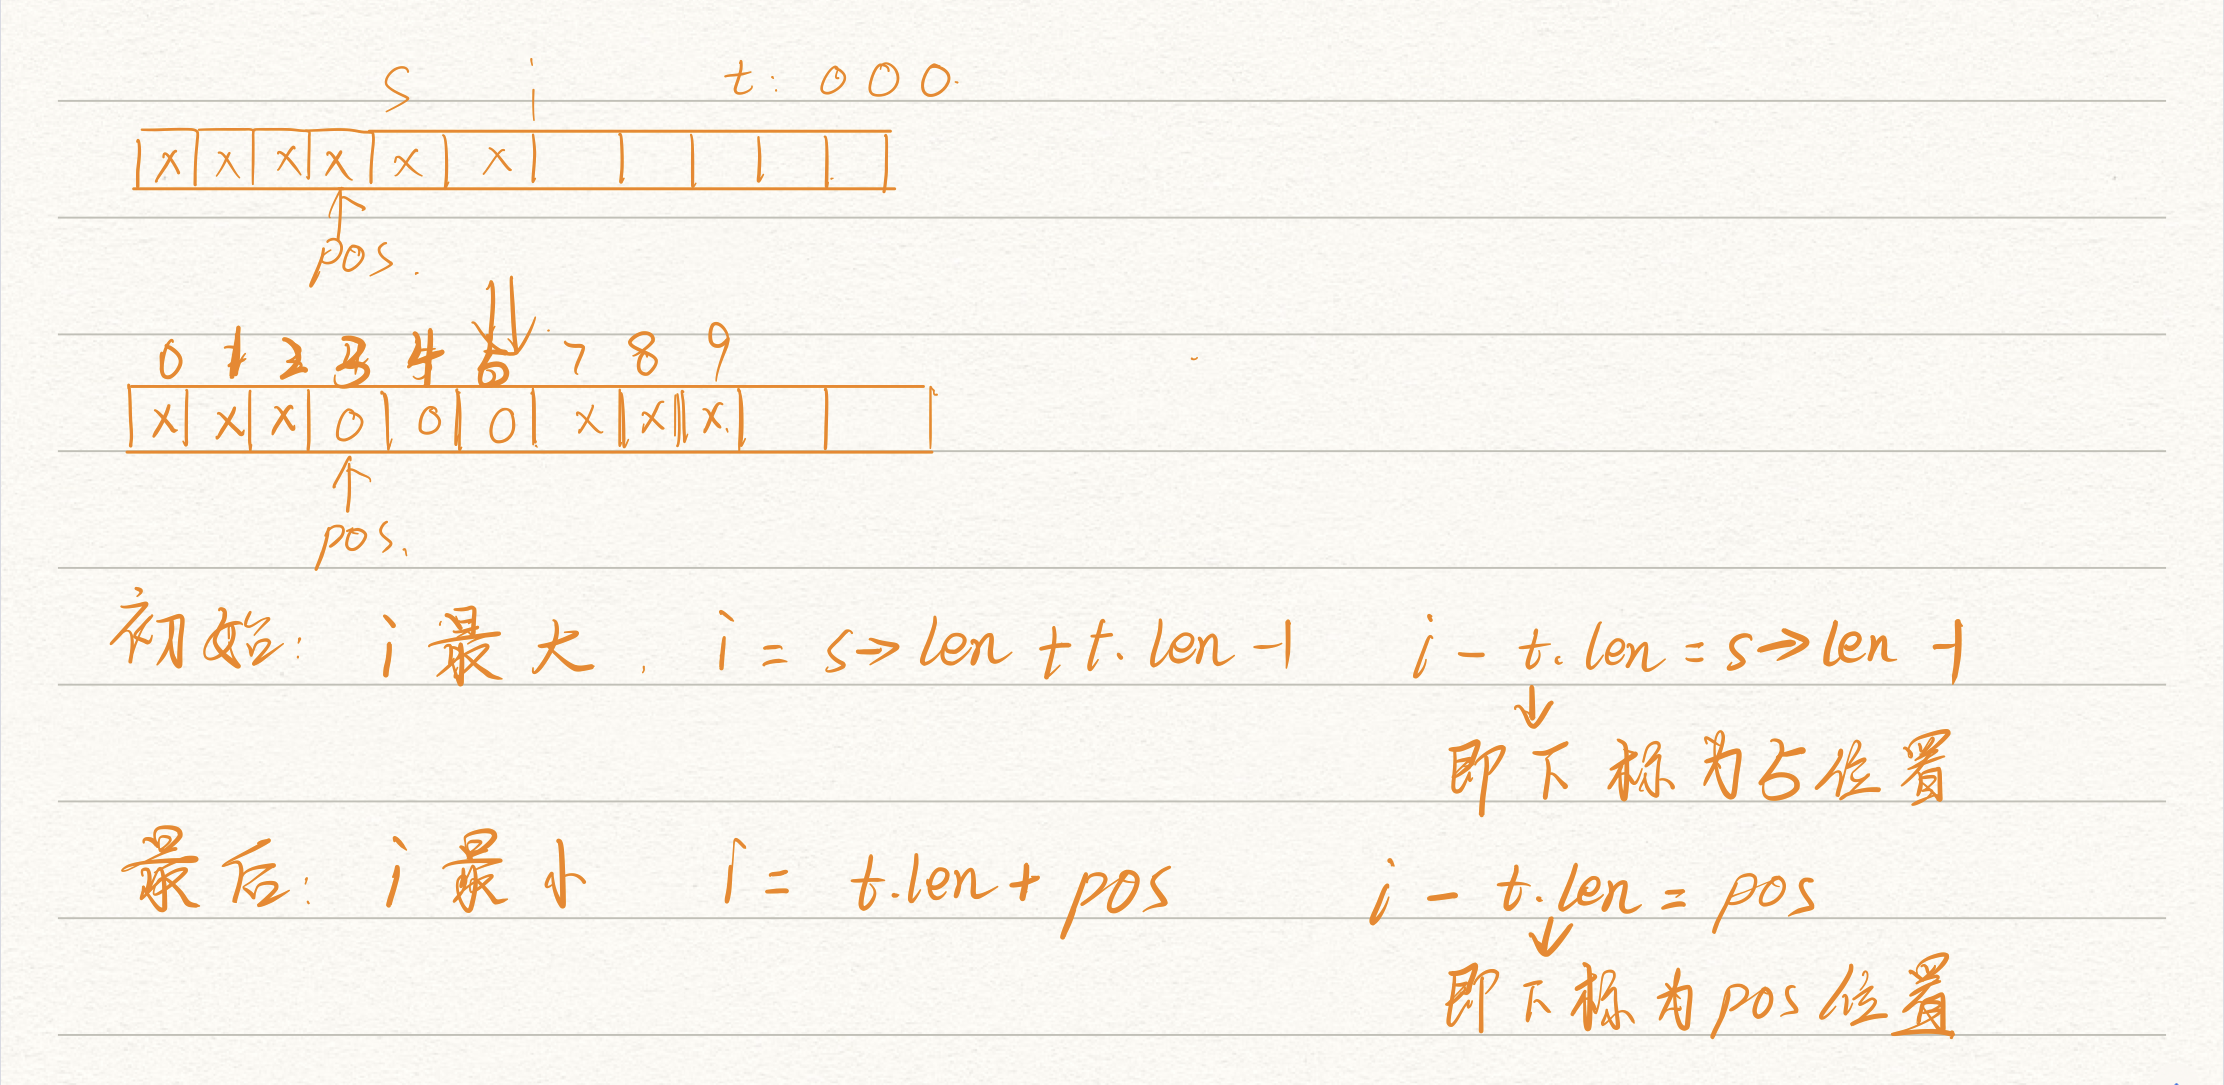 s i t: 000.
x x x x x x
pos.
0 1 2 3 4 5 7 8 9
x x x 0 0 0 x x x.
pos.
初始: i 最大. i = s→len + t.len -1 i - t.len = s→len -1
↓
即下标为5位置
最后: i 最小 i = t.len + pos i - t.len = pos
↓
即下标为pos位置